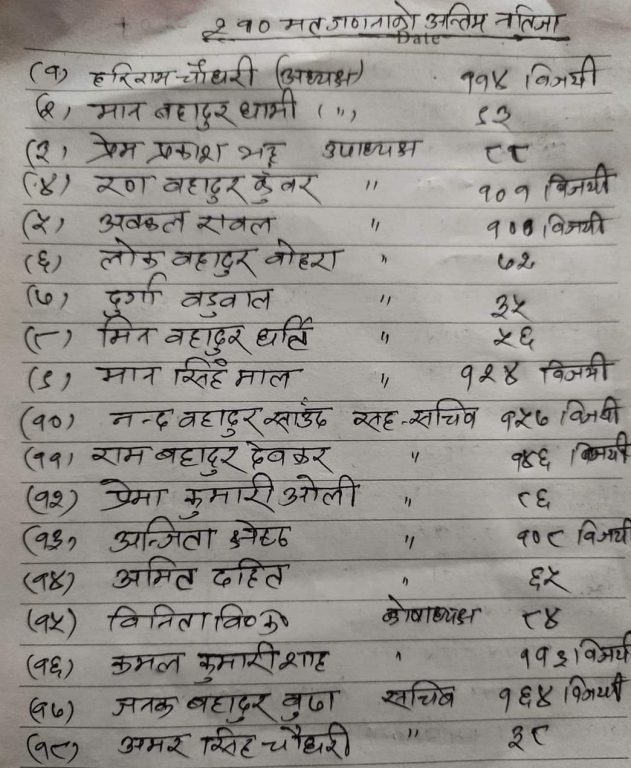 २१० मत गणनाको अन्तिम नतिजा
Date
(१) हरिराम चौधरी (अध्यक्ष) ११४ विजयी
(२) मान बहादुर धामी (") ९३
(३) प्रेम प्रकाश भट्ट उपाध्यक्ष ८८
(४) रण बहादुर कुँवर " १०१ विजयी
(५) अवकल रावल " विजयी
(६) लोक बहादुर बोहरा " ७२
(७) दुर्गा बडुवाल " ३५
(८) मिन बहादुर घर्ति " ५६
(९) मान सिंह माल " १२४ विजयी
(१०) नन्द बहादुर साउँद सह-सचिव १५७ विजयी
(११) राम बहादुर देवकर " १४६ विजयी
(१२) प्रेमा कुमारी ओली " ८६
(१३) अन्जिता श्रेष्ठ " १०८ विजयी
(१४) अमित दहित " ६५
(१५) विनिता वि०क० कोषाध्यक्ष ८४
(१६) कमल कुमारी शाह " ११३ विजयी
(१७) जनक बहादुर बुढा सचिव १६४ विजयी
(१८) अमर सिंह चौधरी " ३८